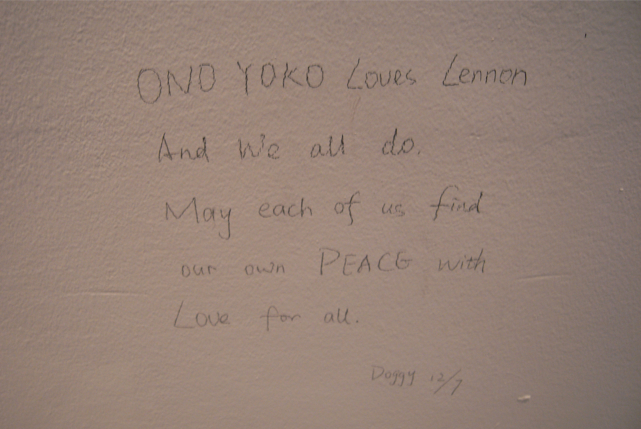 ONO YOKO Loves Lennon
And We all do.
May each of us find
our own PEACE with
Love for all.
Doggy 12/7